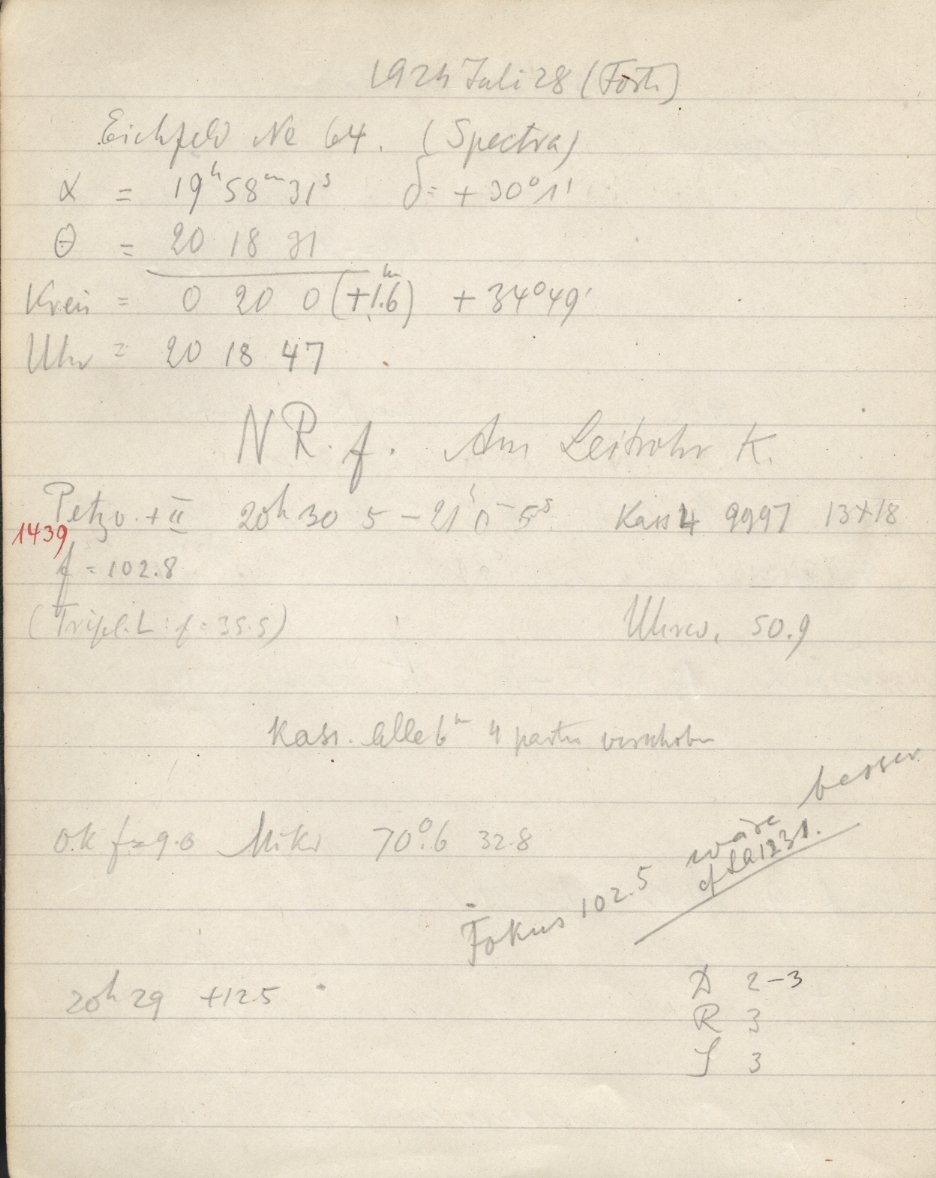 1924 Juli 28 (Forts.)
Eichfeld No 64. (Spectra)
α = 19ʰ58ᵐ31ˢ δ = +30°1'
θ = 20 18 31
Kreis = 0 20 0 (+1.6ᵐ) +34°49'
Uhr = 20 18 47
N R. f. Am Leitrohr K.
Petzv. + II 20h 30 5 – 21ʰ 0 5ˢ Kass 4 9997 13x18
1439
f = 102.8
(Tripl. L : f = 35.5)
Uhrw. 50.9
Kass. alle 6ᵐ 4 partes verschoben
Ok f = 9.0 Mikr 70°.6 32.8
Fokus 102.5 wäre besser
cf
20h 29 +12.5
D 2–3
R 3
S 3